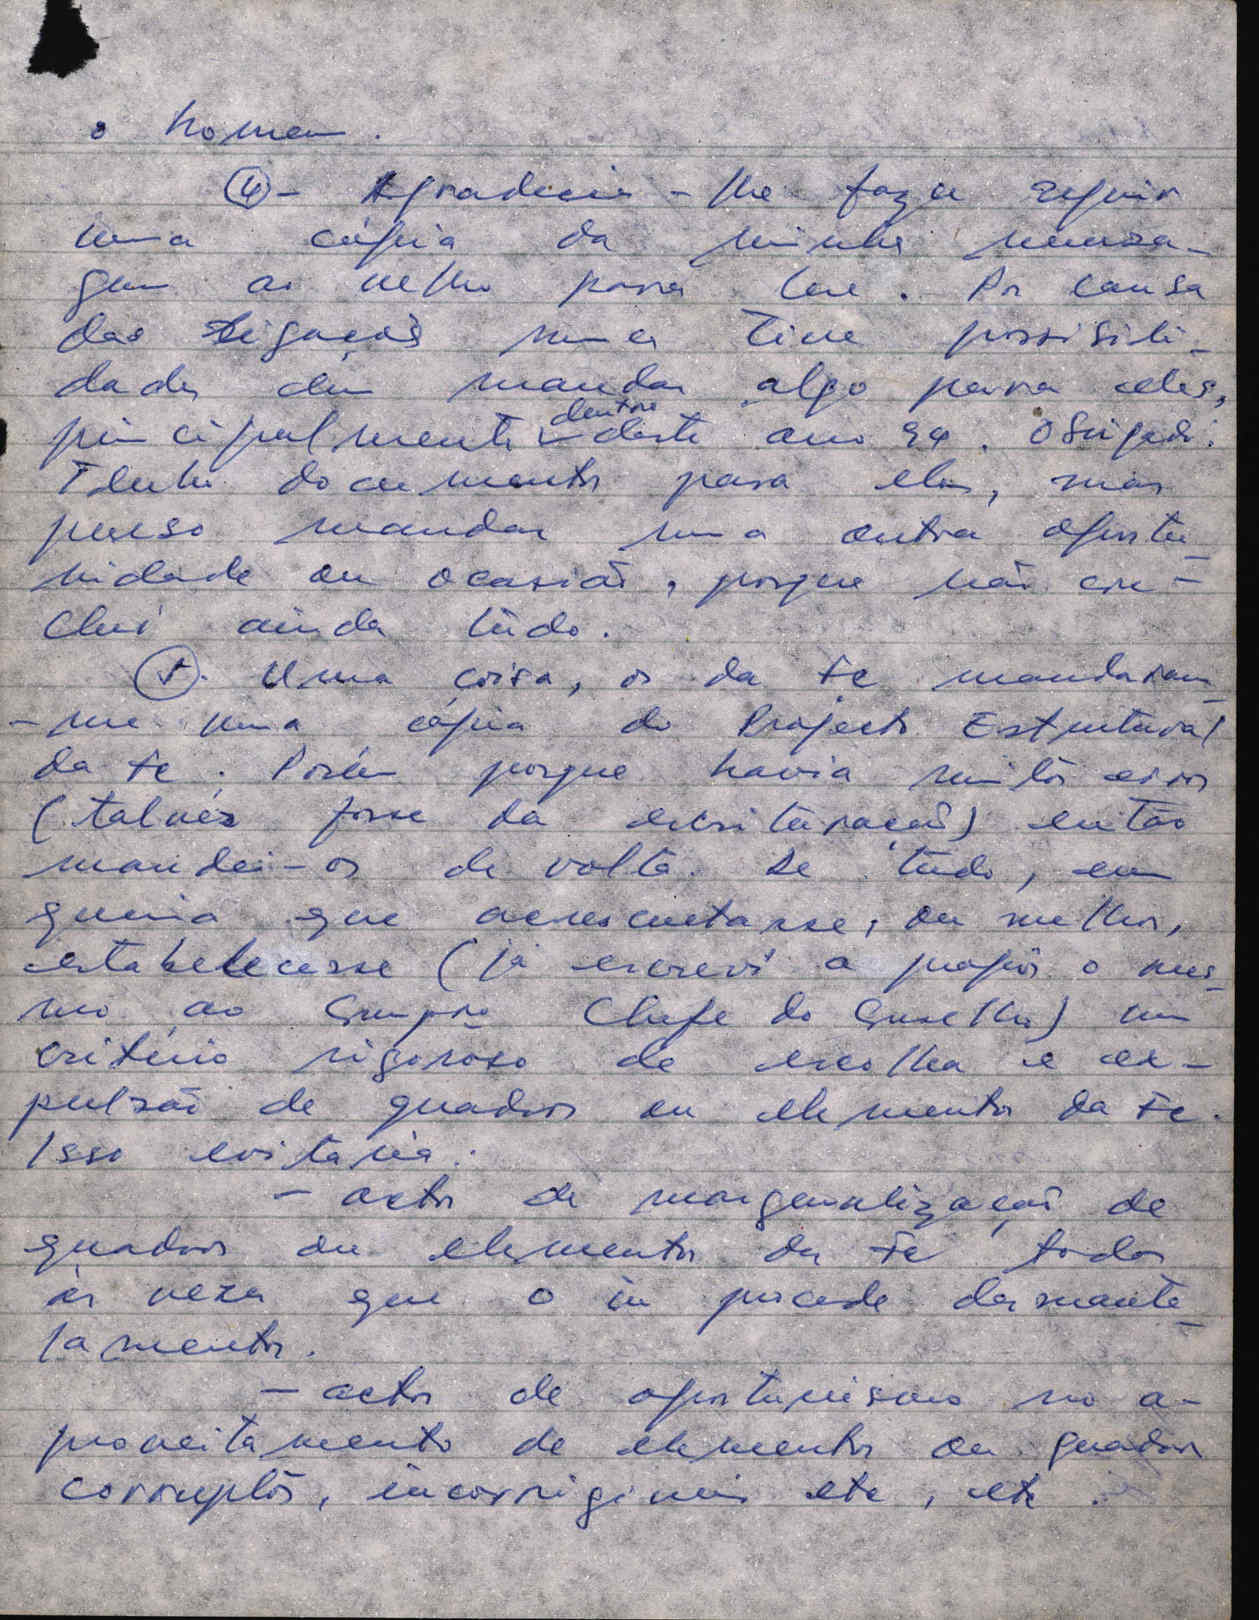 o homem.
④ - Agradecia-lhe fazer seguir
uma cópia da minha mensa-
gem ao velho para ler. Por causa
das ligações nunca tive possibili-
dades de mandar algo para eles,
principalmente dentro deste ano 89. Obrigado.
Tenho documentos para eles, mas
penso mandar numa outra oportu-
nidade ou ocasião, porque não con-
cluí ainda tudo.
⑤. Uma coisa, os da Fc mandaram
-me uma cópia do Projecto Estrutural
da Fc. Porém porque havia muitos erros
(talvez fosse da escrituração) então
mandei-os de volta. De tudo, eu
queria que acrescentasse, ou melhor,
estabelecesse (já escrevi a propôr o mes-
mo ao Compro Chefe do Conselho) um
critério rigoroso de escolha e ex-
pulsão de quadros ou elementos da Fc.
Isso evitaria:
- actos de marginalização de
quadros ou elementos da Fc todas
às vezes que o in procede desmante-
lamentos.
- actos de oportunismo no a-
proveitamento de elementos ou quadros
corruptos, incorrigíveis etc, etc.